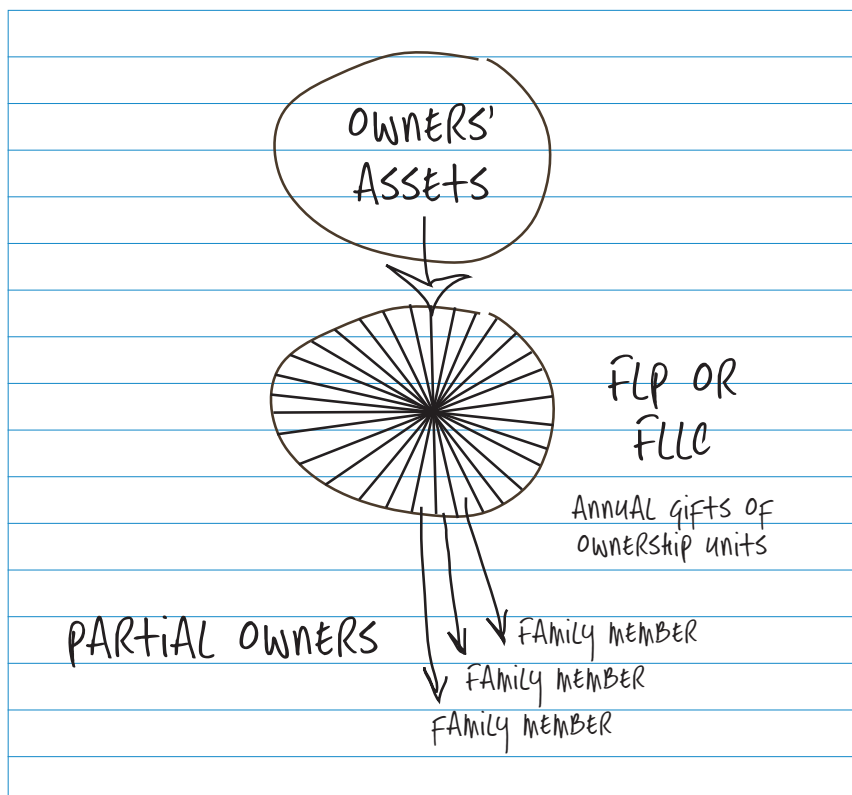 OWNERS'
ASSETS
FLP OR
FLLC
ANNUAL GIFTS OF
OWNERSHIP UNITS
PARTIAL OWNERS
FAMILY MEMBER
FAMILY MEMBER
FAMILY MEMBER